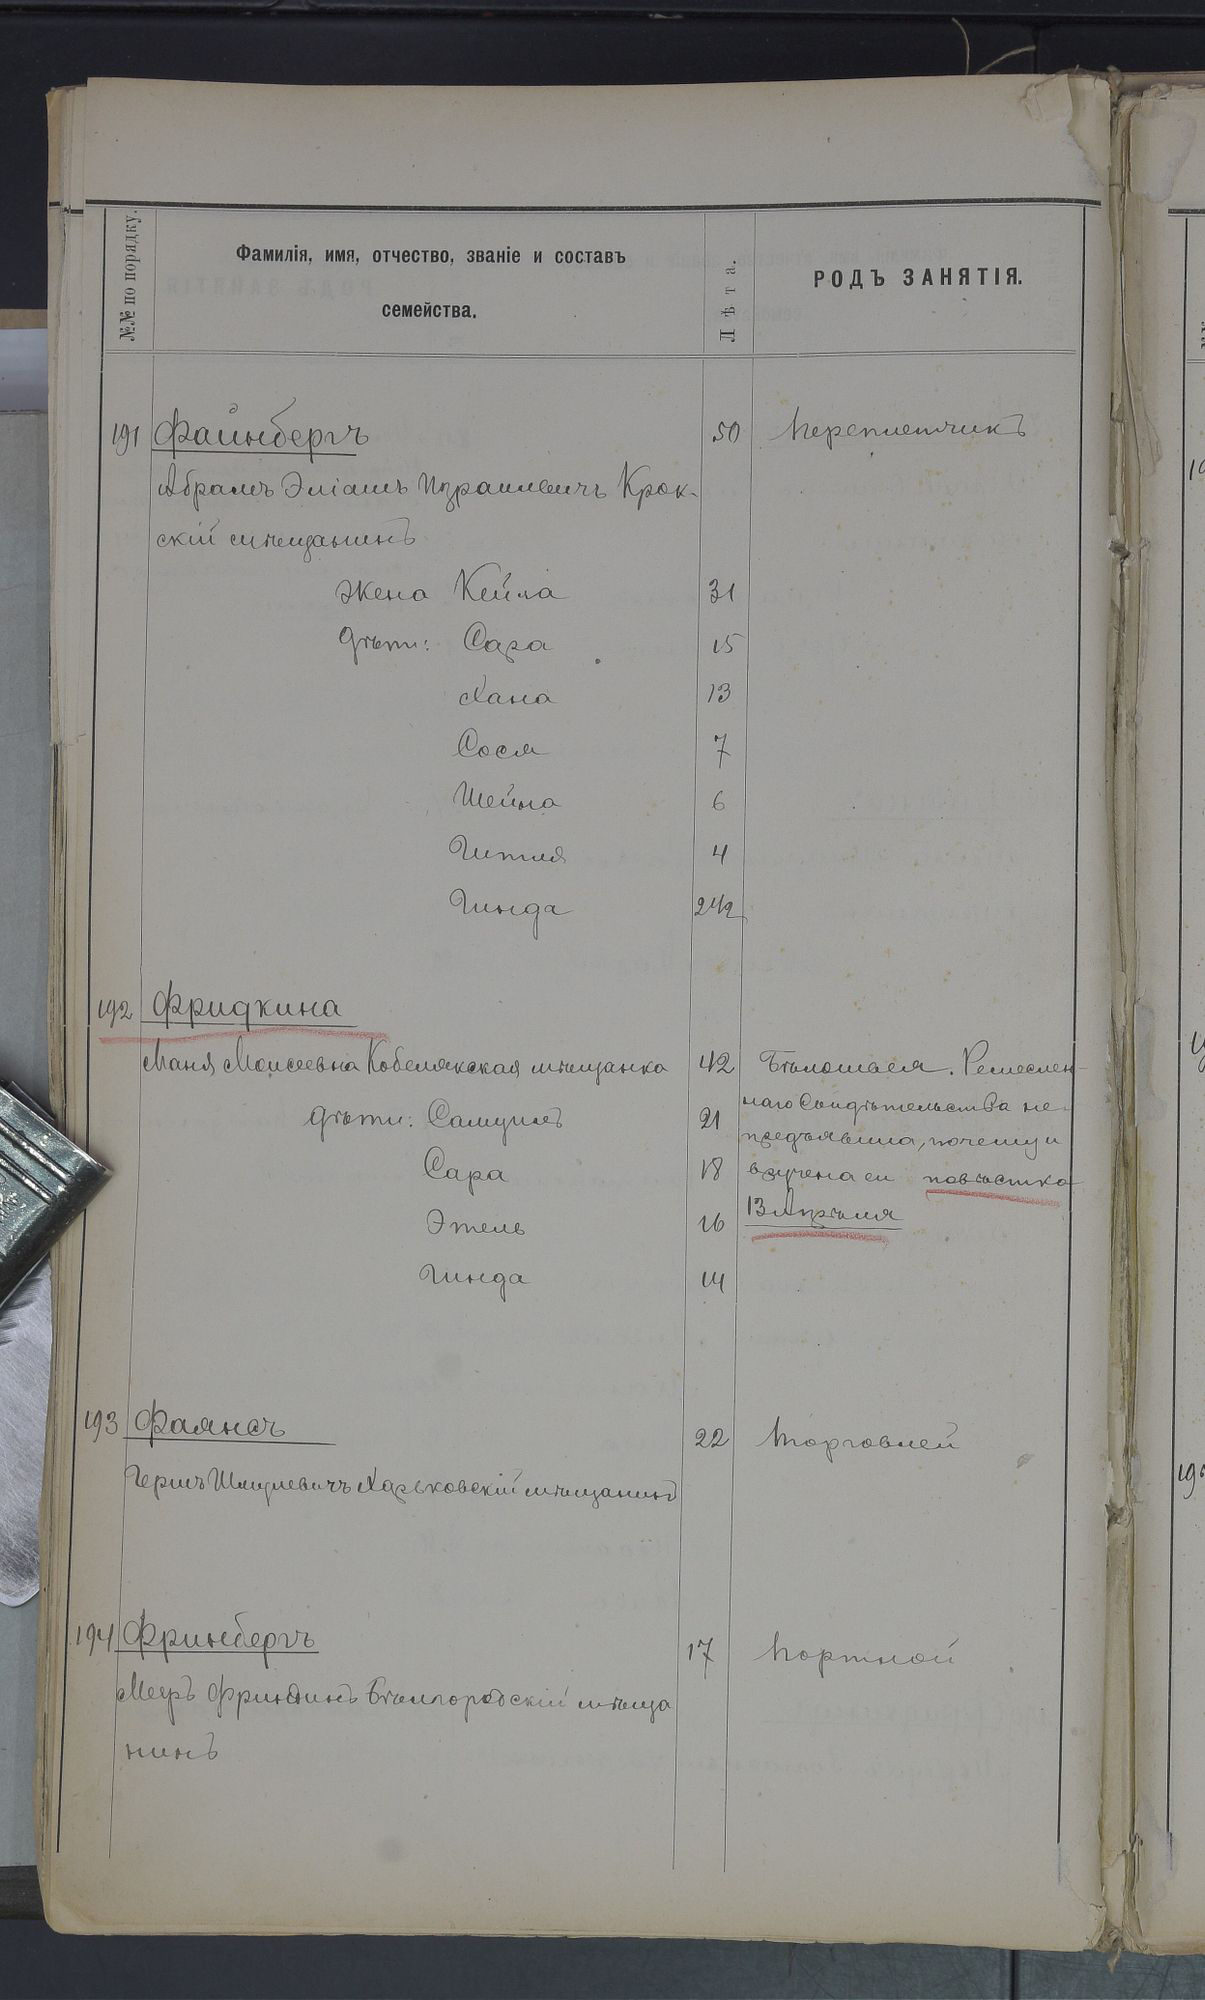 №№ по порядку.
Фамилія, имя, отчество, званіе и составъ
семейства.
Лѣта.
РОДЪ ЗАНЯТІЯ.
191 Файнбергъ 50 Переплетчикъ
Абрамъ Эліашъ Израилевичъ Крок-
скій мѣщанинъ
Жена Кейла 31
Дѣти: Сара 15
Хана 13
Сося 7
Шейна 6
Гитля 4
Гинда 2 1/2
192 Фридкина
Маня Моисеевна Кобелякская мѣщанка 42 Бѣлошвея. Ремеслен-
наго Свидѣтельства не
Дѣти: Самуилъ 21
предъявила, почему и
Сара 18 вручена ей повѣстка
Этель 16 13 Апрѣля
Гинда 14
193 Фаянсъ 22 Торговлей
Гершъ Шмулевичъ Харьковскій мѣщанинъ
194 Фринбергъ 17 Портной
Мееръ Бѣлгородскій мѣща
нинъ